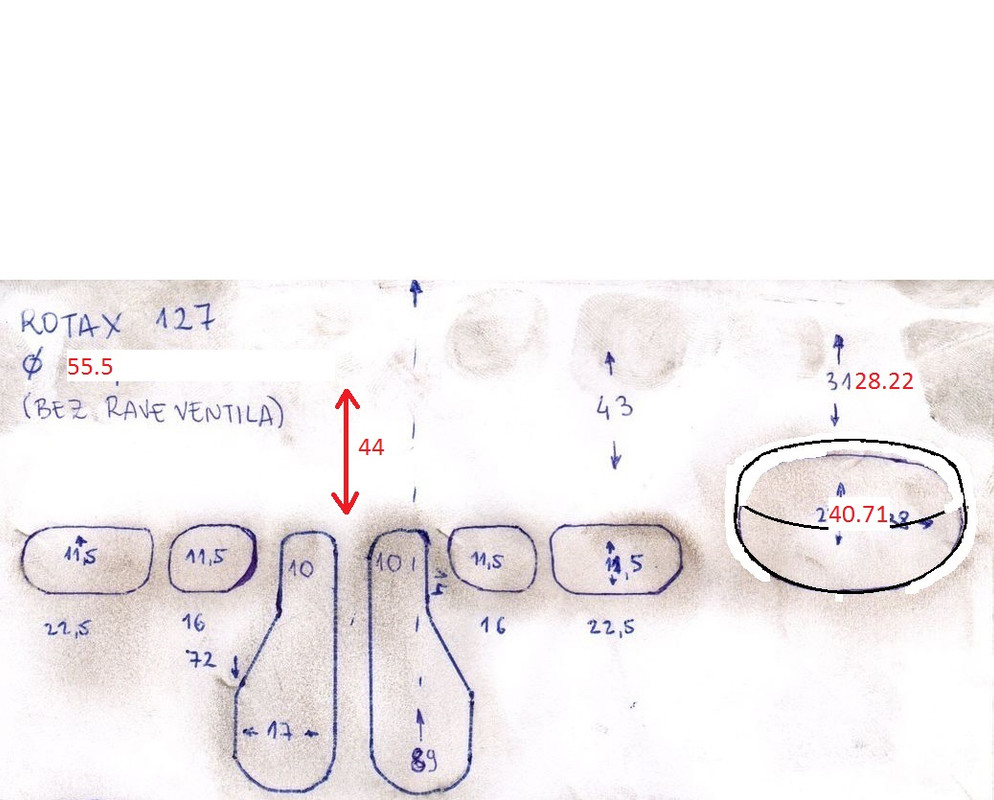 ROTAX 127
Ø 55.5
(BEZ RAVE VENTILA)
44
43
28.22
40.71
11,5
11,5
10
10
11,5
22,5
16
16
22,5
72
17
89